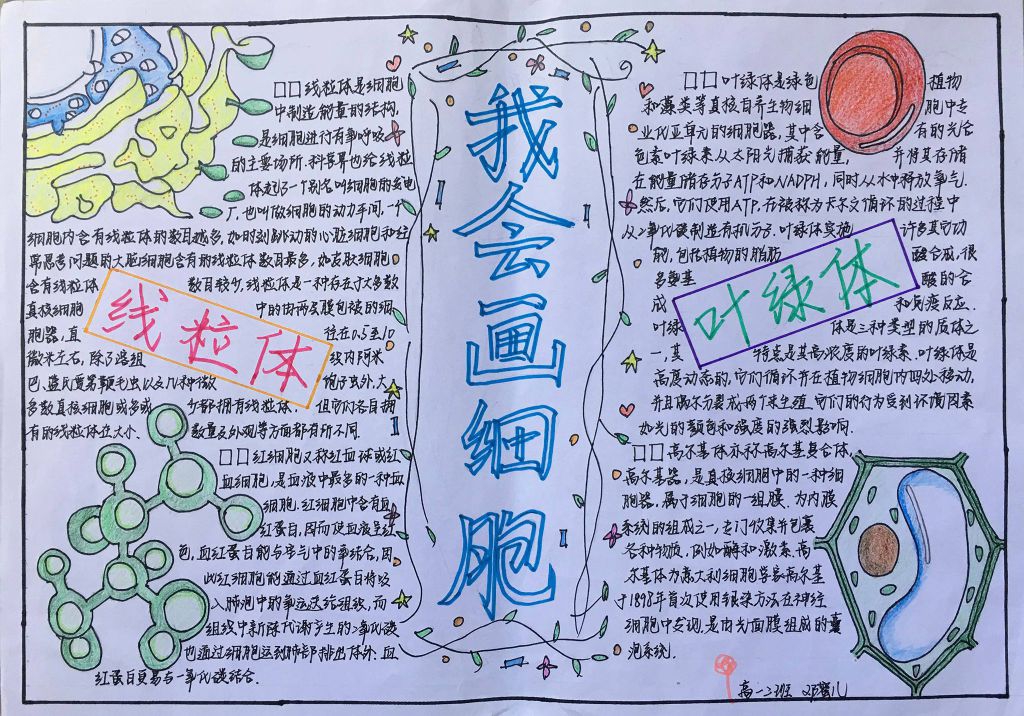 我会画细胞
□□线粒体是细胞
中制造能量的结构,
是细胞进行有氧呼吸
的主要场所.科学界也给线粒
体起了一个别名叫细胞的发电
厂,也叫做细胞的动力车间,一个
细胞内含有线粒体的数目越多,如时刻跳动的心脏细胞和经
常思考问题的大脑细胞含有的线粒体数目最多,如表皮细胞
含有线粒体 数目较少,线粒体是一种存在于大多数
真核细胞 中的由两层膜包被的细
胞器,直 往在0.5至10
微米左右,除了溶组 内阿米
巴、蓝氏贾第鞭毛虫以及几种微 饱子虫外,大
多数真核细胞或多或 少都拥有线粒体, 但它们各自拥
有的线粒体在大小、 数量及外观等方面都有所不同.
线粒体
□□红细胞又称红血球或红
血细胞,是血液中最多的一种血
细胞.红细胞中含有血
红蛋白,因而使血液呈红
色,血红蛋白能与空气中的氧结合,因
此红细胞能通过血红蛋白将吸
入肺泡中的氧运送给组织,而
组织中新陈代谢产生的二氧化碳
也通过细胞运到肺部排出体外.血
红蛋白更易与一氧化碳结合.
□□叶绿体是绿色 植物
和藻类等真核自养生物细 胞中专
业化亚单元的细胞器,其中含 有的光合
色素叶绿素从太阳光捕获能量, 并将其存储
在能量储存分子ATP和NADPH,同时从水中释放氧气.
然后,它们使用ATP,在被称为卡尔文循环的过程中
从二氧化碳制造有机分子.叶绿体实施 许多其它功
能,包括植物的脂肪 酸合成,很
多氨基 酸的合
成 和免疫反应.
叶绿 体是三种类型的质体之
一,其 特点是其高浓度的叶绿素.叶绿体是
高度动态的,它们循环并在植物细胞内四处移动,
并且偶尔分裂成两个来生殖.它们的行为受到环境因素
如光的颜色和强度的强烈影响.
叶绿体
□□高尔基体亦称高尔基复合体,
高尔基器,是真核细胞中的一种细
胞器,属于细胞的一组膜.为内膜
系统的组成之一,专门收集并包裹
各种物质,例如酶和激素.高
尔基体为意大利细胞学家高尔基
于1898年首次使用银染方法在神经
细胞中发现.是由光面膜组成的囊
泡系统.
高一2班 邓